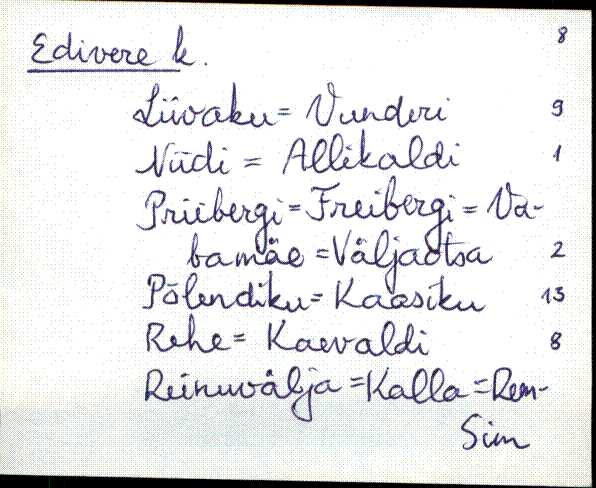 8
Edivere k.
Liivaku = Vunderi 9
Niidi = Allikaldi 1
Priibergi = Freibergi = Va-
bamäe = Väljaotsa 2
Põlendiku = Kaasiku 13
Rehe = Kaevaldi 8
Reinuvälja = Kalla = Rem-
Sim